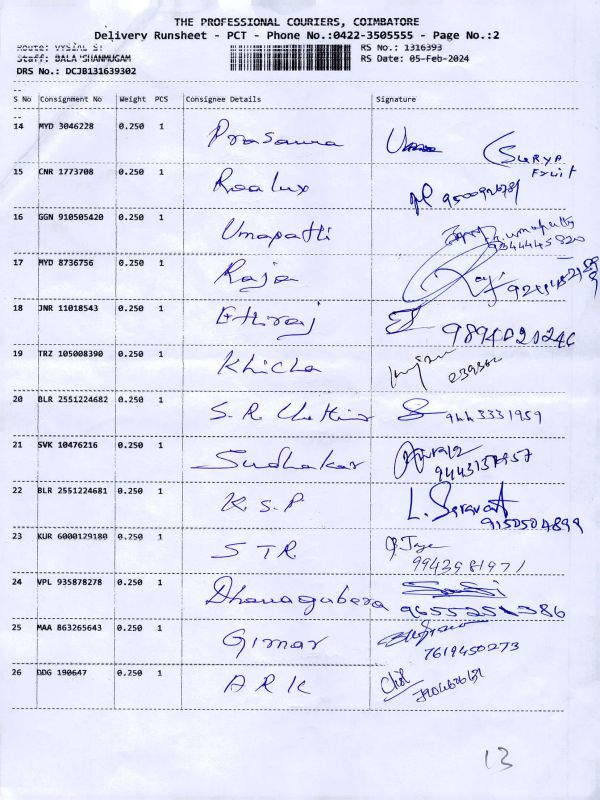 THE PROFESSIONAL COURIERS, COIMBATORE
Delivery Runsheet - PCT - Phone No.:0422-3505555 - Page No.:2
Route: VYSIAL ST
Staff: BALA SHANMUGAM
RS No.: 1316393
RS Date: 05-Feb-2024
DRS No.: DCJB131639302
S No Consignment No Weight PCS Consignee Details Signature
14 MYD 3046228 0.250 1 Prasanna (Surya
Fruit
15 CNR 1773708 0.250 1 Roalux
16 GGN 910505420 0.250 1 Umapathi
9344445820
17 MYD 8736756 0.250 1 Raja
18 JNR 11018543 0.250 1 Ethiraj
9894020246
19 TRZ 105008390 0.250 1 Khicha
20 BLR 2551224682 0.250 1 S.R. 9443331959
21 SVK 10476216 0.250 1 Sudhakar
22 BLR 2551224681 0.250 1 K.S.P L. Saravan
9150504899
23 KUR 6000129180 0.250 1 STR
9943981971
24 VPL 935878278 0.250 1 Dhanagubera
25 MAA 863265643 0.250 1 Gimar
7619450273
26 DDG 190647 0.250 1 ARK
13